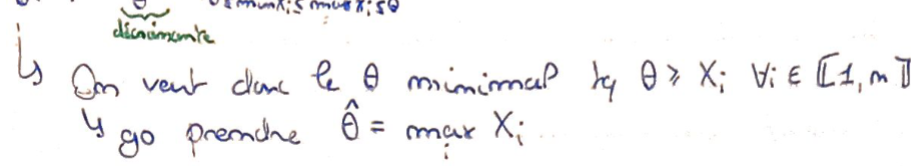 θ 0 ≤ min Xᵢ ≤ max Xᵢ ≤ θ
décroissante
↳ On veut donc le θ minimal tq θ ≥ Xᵢ ∀i ∈ ⟦1, n⟧
↳ go prendre θ̂ = max Xᵢ
i